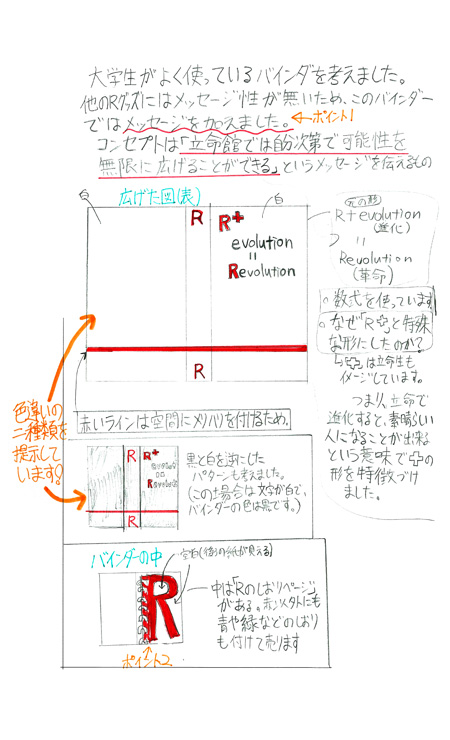 大学生がよく使っているバインダを考えました。
他のRグッズにはメッセージ性が無いため、このバインダー
ではメッセージを加えました。 ←ポイント1
コンセプトは「立命館では自分次第で可能性を
無限に広げることができる」というメッセージを伝えるもの
広げた図(表)
白
白
R
R+
evolution
=
Revolution
R
元の形
R+evolution
(進化)
=
Revolution
(革命)
○数式を使っています。
○なぜ「R✚」と特殊
な形にしたのか?
↳「✚」は立命生も
イメージしています。
つまり、立命で
進化すると、素晴らしい
人になることが出来る
という意味で✚の
形を特徴づけ
ました。
赤いラインは空間にメリハリを付けるため。
色違いの
二種類を
提示して
います!
R
R+
evolution
=
Revolution
R
黒と白を逆にした
パターンも考えました。
(この場合は文字が白で、
バインダーの色は黒です。)
バインダーの中
空白(後)の紙が見える)
R
中は「Rのしおりページ」
がある。赤以外にも
青や緑などのしおり
も付けて売ります
ポイント2